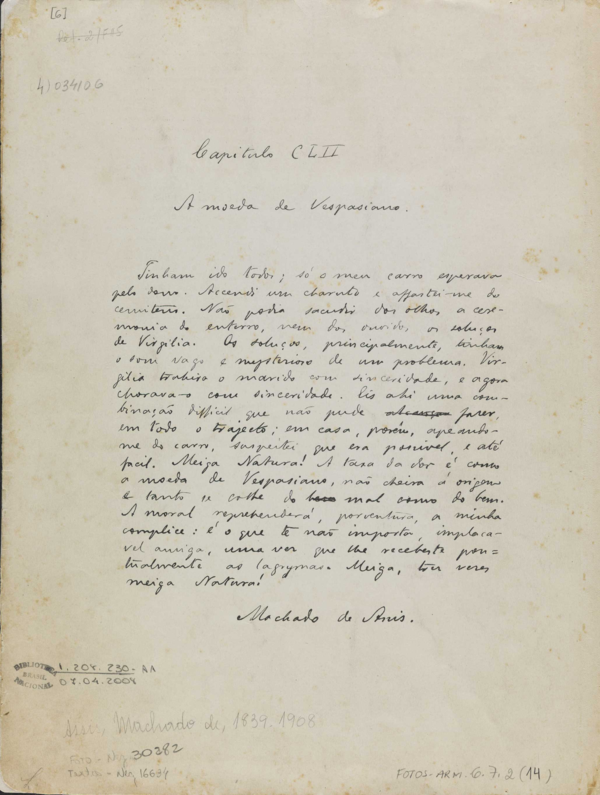 [6]
4) 034106
Capitulo CLII
A moeda de Vespasiano.
Tinham ido todos; só o meu carro esperava
pelo dono. Accendi um charuto e affastei-me do
cemiterio. Não podia sacudir dos olhos a cere-
monia do enterro, nem dos ouvidos os soluços
de Virgilia. Os soluços, principalmente, tinham
o som vago e mysterioso de um problema. Vir-
gilia trahira o marido com sinceridade, e agora
chorava-o com sinceridade. Eis ahi uma com-
binação difficil que não pude fazer,
em todo o trajecto; em casa, porém, apeando-
me do carro, suspeitei que era possivel, e até
facil. Meiga Natura! A taxa da dor é como
a moeda de Vespasiano, não cheira á origem
e tanto se colhe do mal como do bem.
A moral reprehenderá, porventura, a minha
complice: é o que te não importa, implaca-
vel amiga, uma vez que lhe recebeste pon-
tualmente as lagrymas. Meiga, trez vezes
meiga Natura!
Machado de Assis.
BIBLIOTECA
BRASIL
NACIONAL
1.207.230-AA
07.04.2004
Assis, Machado de, 1839-1908
Foto-Neg 30382
Neg 16634
FOTOS-ARM.6.7.2(14)